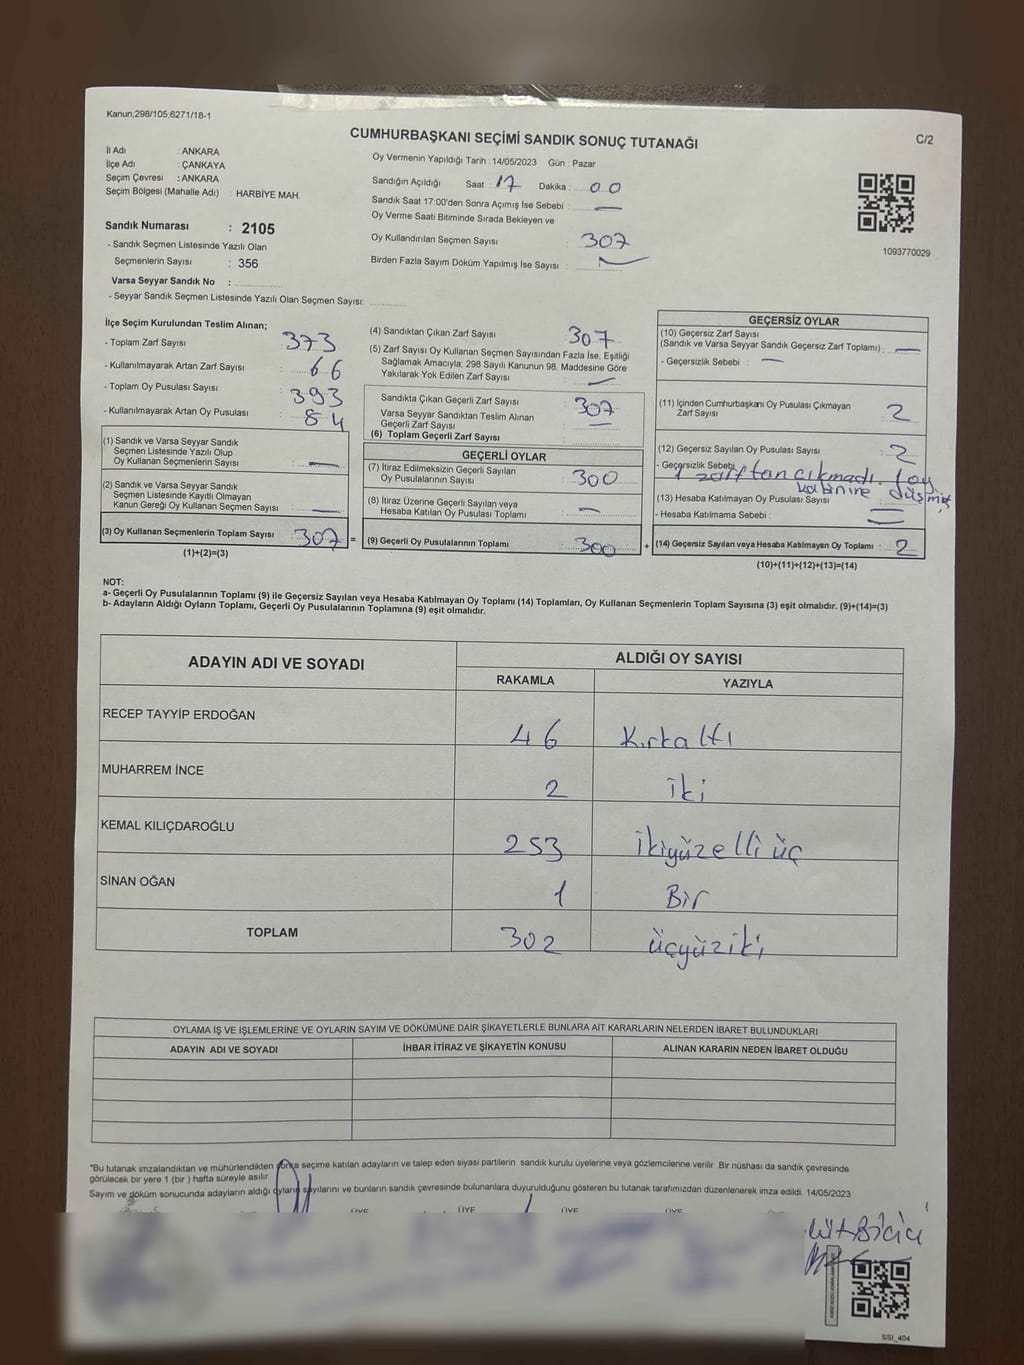 Kanun;298/105;6271/18-1
CUMHURBAŞKANI SEÇİMİ SANDIK SONUÇ TUTANAĞI
C/2
İl Adı : ANKARA
İlçe Adı : ÇANKAYA
Seçim Çevresi : ANKARA
Seçim Bölgesi (Mahalle Adı) : HARBİYE MAH.
Sandık Numarası : 2105
- Sandık Seçmen Listesinde Yazılı Olan
Seçmenlerin Sayısı : 356
Varsa Seyyar Sandık No :
- Seyyar Sandık Seçmen Listesinde Yazılı Olan Seçmen Sayısı:
Oy Vermenin Yapıldığı Tarih : 14/05/2023 Gün : Pazar
Sandığın Açıldığı Saat : 17 Dakika : 00
Sandık Saat 17:00'den Sonra Açımış İse Sebebi : —
Oy Verme Saati Bitiminde Sırada Bekleyen ve
Oy Kullandırılan Seçmen Sayısı : 307
Birden Fazla Sayım Döküm Yapılmış İse Sayısı :
1093770029
İlçe Seçim Kurulundan Teslim Alınan;
- Toplam Zarf Sayısı : 373
- Kullanılmayarak Artan Zarf Sayısı : 66
- Toplam Oy Pusulası Sayısı : 393
- Kullanılmayarak Artan Oy Pusulası : 84
(1) Sandık ve Varsa Seyyar Sandık
Seçmen Listesinde Yazılı Olup
Oy Kullanan Seçmenlerin Sayısı : —
(2) Sandık ve Varsa Seyyar Sandık
Seçmen Listesinde Kayıtlı Olmayan
Kanun Gereği Oy Kullanan Seçmen Sayısı : —
(3) Oy Kullanan Seçmenlerin Toplam Sayısı : 307 =
(1)+(2)=(3)
(4) Sandıktan Çıkan Zarf Sayısı 307
(5) Zarf Sayısı Oy Kullanan Seçmen Sayısından Fazla İse, Eşitliği
Sağlamak Amacıyla; 298 Sayılı Kanunun 98. Maddesine Göre
Yakılarak Yok Edilen Zarf Sayısı : —
Sandıkta Çıkan Geçerli Zarf Sayısı : 307
Varsa Seyyar Sandıktan Teslim Alınan
Geçerli Zarf Sayısı : —
(6) Toplam Geçerli Zarf Sayısı :
GEÇERLİ OYLAR
(7) İtiraz Edilmeksizin Geçerli Sayılan
Oy Pusulalarının Sayısı : 300
(8) İtiraz Üzerine Geçerli Sayılan veya
Hesaba Katılan Oy Pusulası Toplamı : —
(9) Geçerli Oy Pusulalarının Toplamı : 300 +
GEÇERSİZ OYLAR
(10) Geçersiz Zarf Sayısı
(Sandık ve Varsa Seyyar Sandık Geçersiz Zarf Toplamı) : —
- Geçersizlik Sebebi : —
(11) İçinden Cumhurbaşkanı Oy Pusulası Çıkmayan
Zarf Sayısı : 2
(12) Geçersiz Sayılan Oy Pusulası Sayısı : 2
- Geçersizlik Sebebi 1 zarftan çıkmadı. 1 oy
kabinine düşmüş
(13) Hesaba Katılmayan Oy Pusulası Sayısı : —
- Hesaba Katılmama Sebebi : —
(14) Geçersiz Sayılan veya Hesaba Katılmayan Oy Toplamı : 2
(10)+(11)+(12)+(13)=(14)
NOT:
a- Geçerli Oy Pusulalarının Toplamı (9) ile Geçersiz Sayılan veya Hesaba Katılmayan Oy Toplamı (14) Toplamları, Oy Kullanan Seçmenlerin Toplam Sayısına (3) eşit olmalıdır. (9)+(14)=(3)
b- Adayların Aldığı Oyların Toplamı, Geçerli Oy Pusulalarının Toplamına (9) eşit olmalıdır.
ADAYIN ADI VE SOYADI ALDIĞI OY SAYISI
RAKAMLA YAZIYLA
RECEP TAYYİP ERDOĞAN 46 Kırkaltı
MUHARREM İNCE 2 iki
KEMAL KILIÇDAROĞLU 253 ikiyüzelli üç
SİNAN OĞAN 1 Bir
TOPLAM 302 üçyüziki
OYLAMA İŞ VE İŞLEMLERİNE VE OYLARIN SAYIM VE DÖKÜMÜNE DAİR ŞİKAYETLERLE BUNLARA AİT KARARLARIN NELERDEN İBARET BULUNDUKLARI
ADAYIN ADI VE SOYADI İHBAR İTİRAZ VE ŞİKAYETİN KONUSU ALINAN KARARIN NEDEN İBARET OLDUĞU
"Bu tutanak imzalandıktan ve mühürlendikten sonra seçime katılan adayların ve talep eden siyasi partilerin sandık kurulu üyelerine veya gözlemcilerine verilir. Bir nüshası da sandık çevresinde
görülecek bir yere 1 (bir) hafta süreyle asılır.
Sayım ve döküm sonucunda adayların aldığı oyların sayılarını ve bunların sandık çevresinde bulunanlara duyurulduğunu gösteren bu tutanak tarafımızdan düzenlenerek imza edildi. 14/05/2023
ÜYE ÜYE ÜYE ÜYE
SSI_404